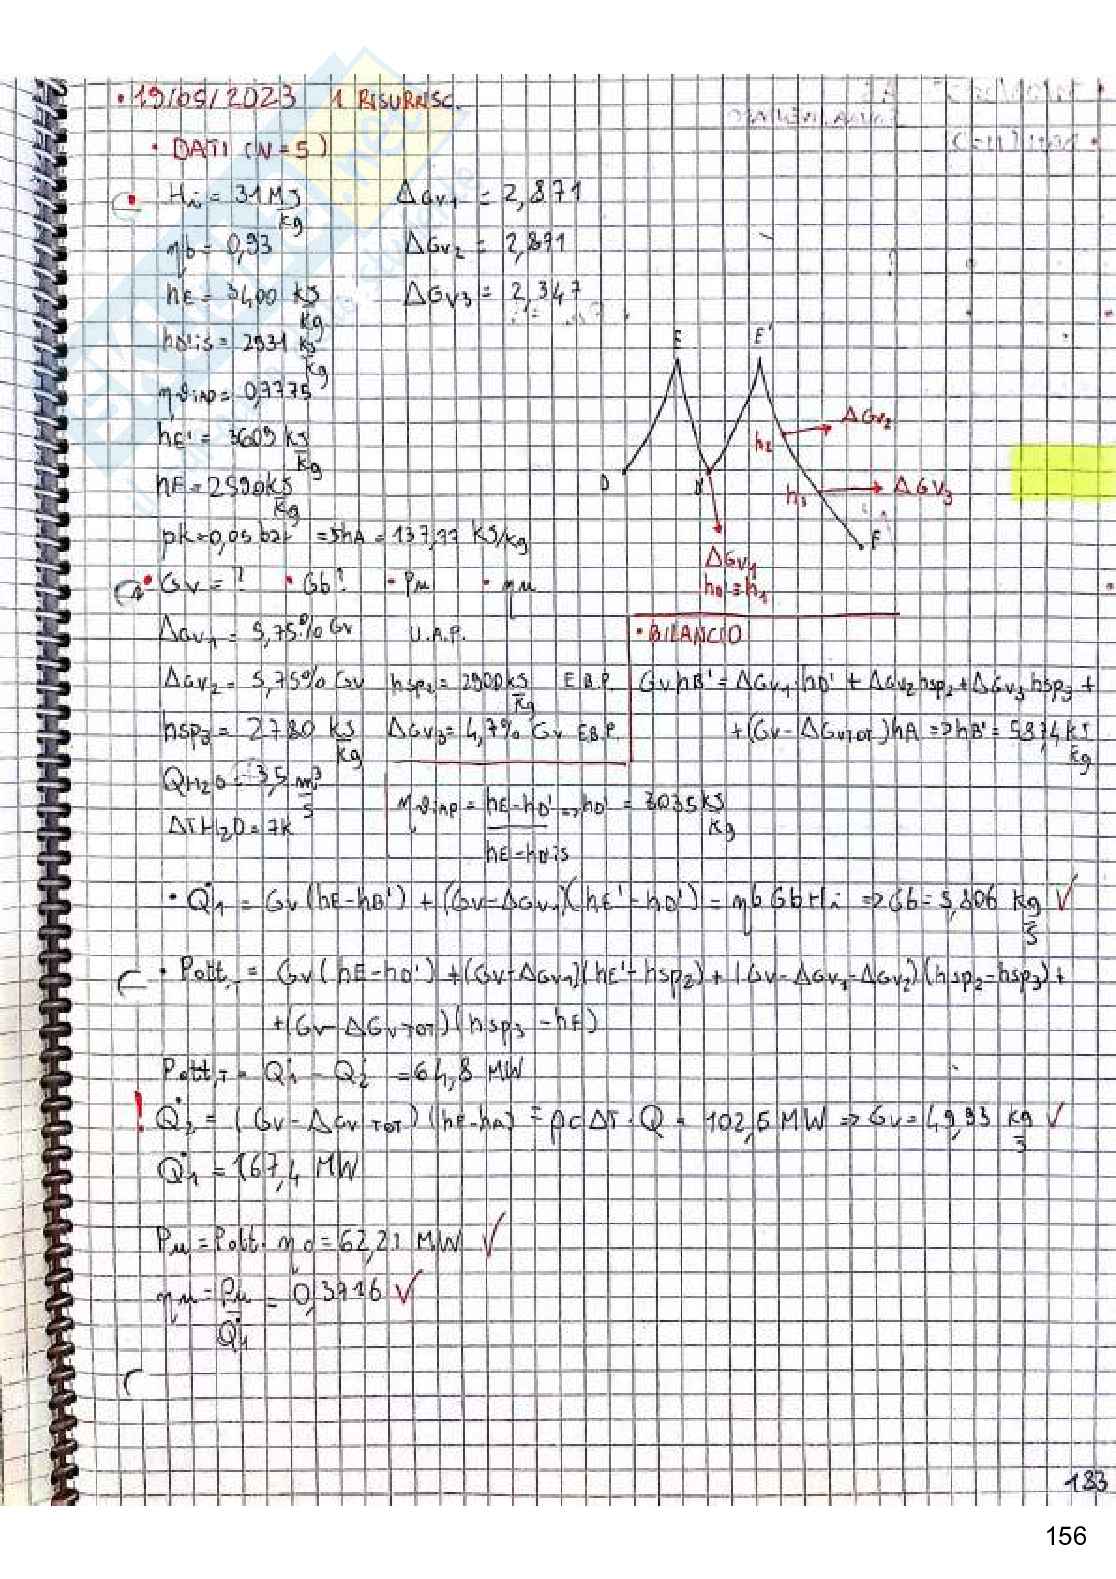 • 19/09/2023 1 RISURRISC.
• DATI (N=5)
Hi = 31 MJ/kg ΔGv1 = 2,871
ηb = 0,93 ΔGv2 = 2,871
hE = 3400 kJ/kg ΔGv3 = 2,347
hD'is = 2931 kJ/kg
ηθiAP = 0,7775
hE' = 3609 kJ/kg
hF = 2590 kJ/kg
pk = 0,05 bar => hA = 137,77 kJ/kg
E E'
D D' F
h2 ΔGv2
h3 ΔGv3
ΔGv1
hD' = h1
• Gv = ? • Gb? • Pu • ηu
ΔGv1 = 5,75% Gv U.A.P.
ΔGv2 = 5,75% Gv hsp2 = 2900 kJ/kg E.B.P.
hsp3 = 2780 kJ/kg ΔGv3 = 4,7% Gv E.B.P.
QH2O = 3,5 m³/s
ΔTH2O = 7K
• BILANCIO
GvhB' = ΔGv1·hD' + ΔGv2hsp2 + ΔGv3hsp3 +
+(Gv-ΔGvTOT)hA => hB' = 587,4 kJ/kg
ηθiAP = (hE-hD')/(hE-hD'is) => hD' = 3035 kJ/kg
• Q̇1 = Gv(hE-hB') + (Gv-ΔGv1)(hE'-hD') = ηb Gb Hi => Gb = 5,806 kg/s ✓
• Pott,T = Gv(hE-hD') + (Gv-ΔGv1)(hE'-hsp2) + (Gv-ΔGv1-ΔGv2)(hsp2-hsp3) +
+(Gv-ΔGvTOT)(hsp3-hF)
Pott,T = Q̇1 - Q̇2 = 64,8 MW
! Q̇2 = (Gv-ΔGvTOT)(hF-hA) = ρcΔT·Q = 102,6 MW => Gv = 49,93 kg/s ✓
Q̇1 = 167,4 MW
Pu = Pott·ηo = 62,21 MW ✓
ηu = Pu/Q̇1 = 0,3716 ✓
183
156